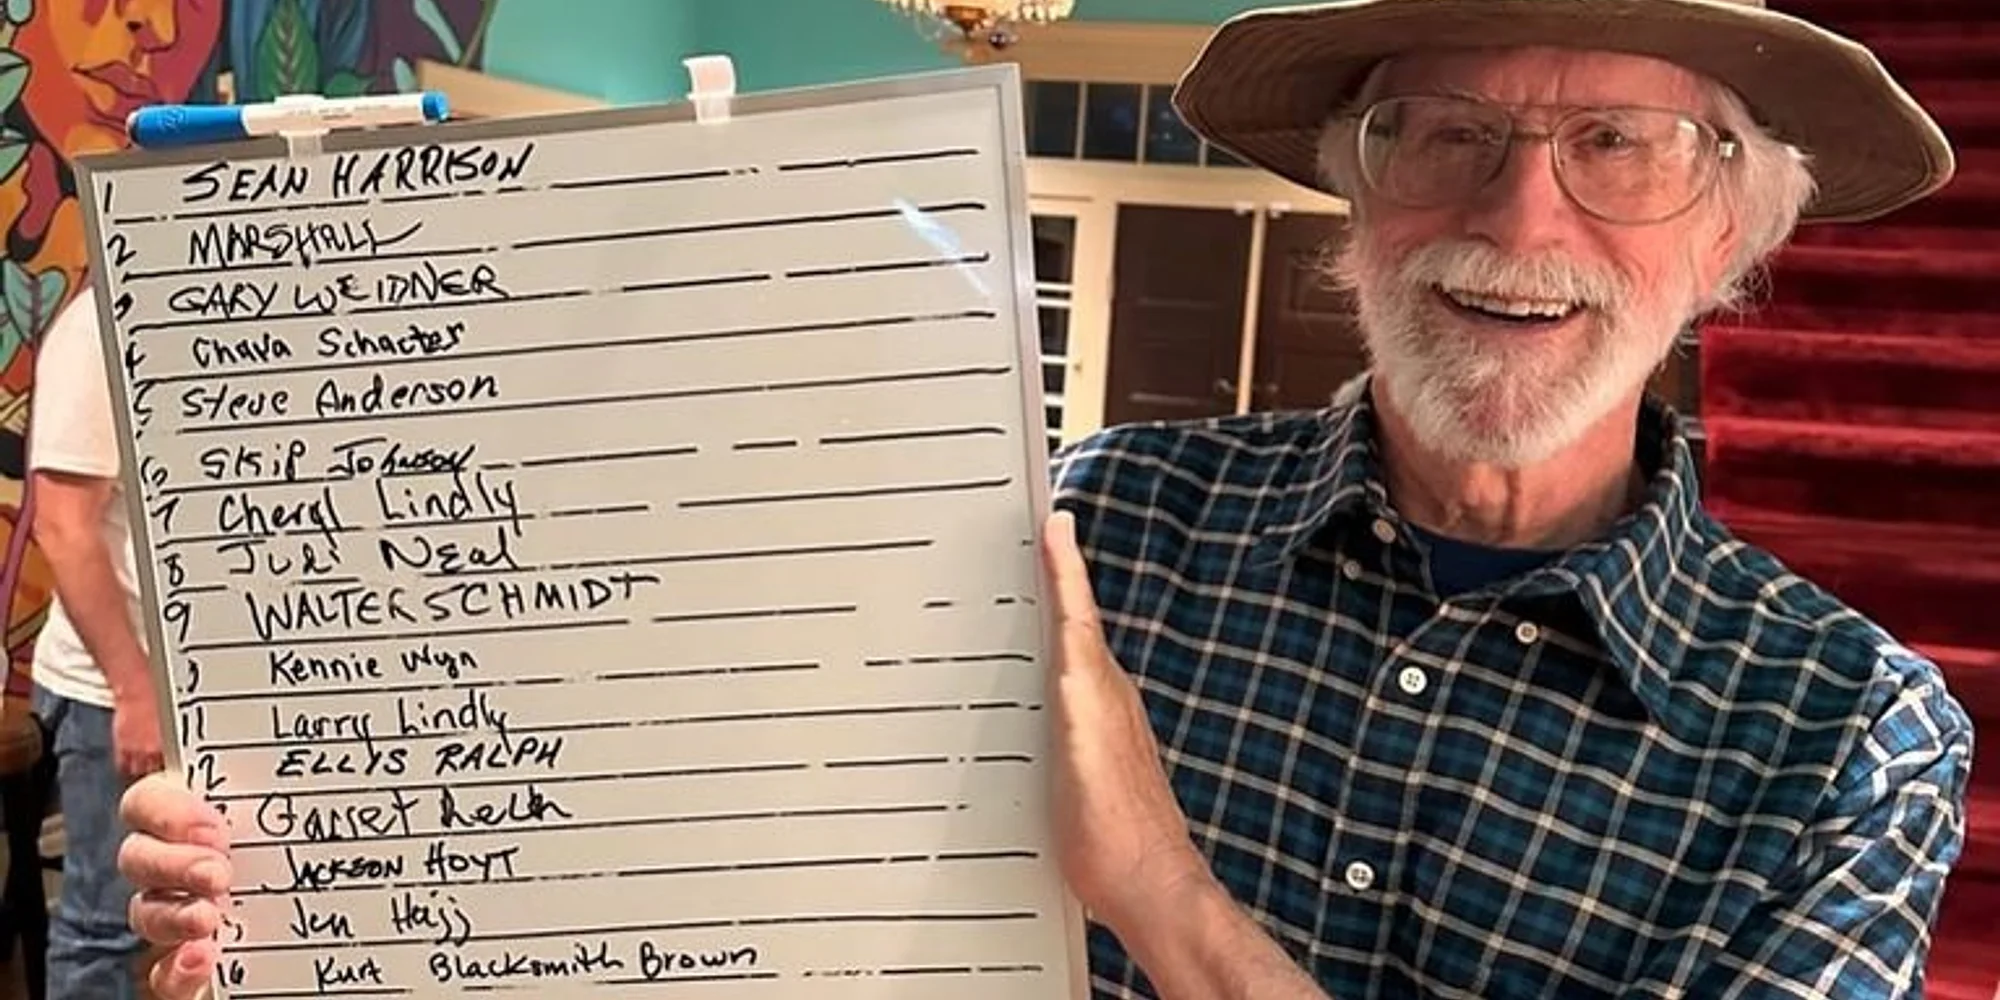 1 SEAN HARRISON
2 MARSHALL
3 GARY WEIDNER
4 Chava Schacter
5 Steve Anderson
6 Skip Johnson
7 Cheryl Lindly
8 Juli Neal
9 WALTER SCHMIDT
Kennie Wyn
11 Larry Lindly
12 ELLIS RALPH
Garret
JACKSON HOYT
Jen Hajj
16 Kurt Blacksmith Brown